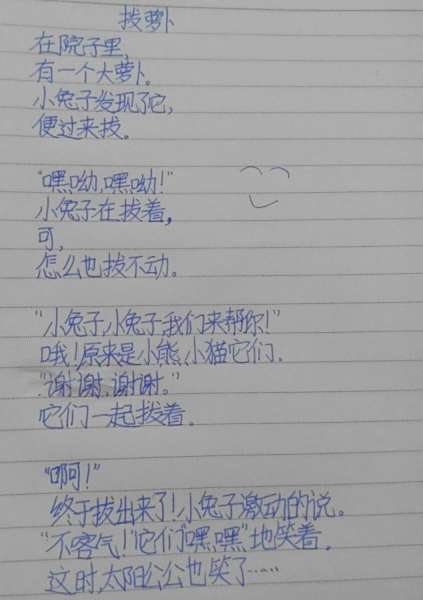 拔萝卜
在院子里,
有一个大萝卜。
小兔子发现了它,
便过来拔。
"嘿呦,嘿呦!"
小兔子在拔着,
可,
怎么也拔不动。
"小兔子,小兔子我们来帮你!"
哦!原来是小熊,小猫它们.
"谢谢,谢谢。"
它们一起拔着.
"啊!"
终于拔出来了!小兔子激动的说。
"不客气!"它们"嘿,嘿"地笑着.
这时,太阳公公也笑了……